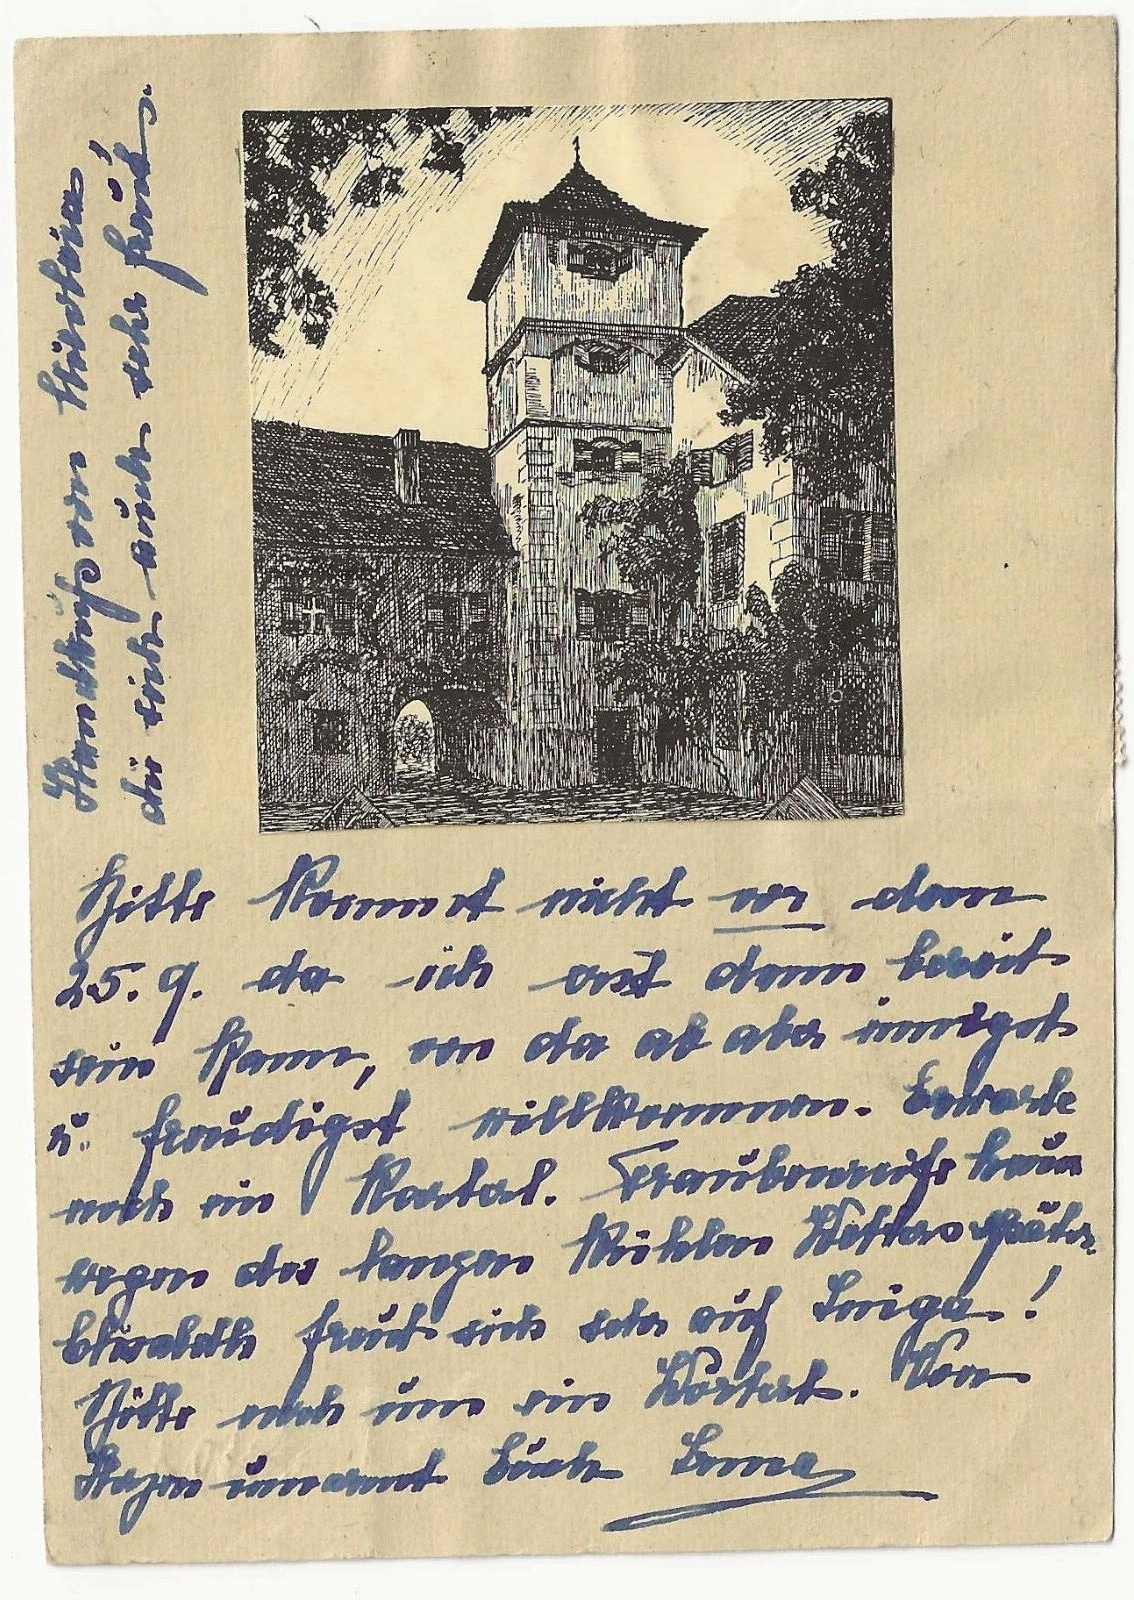 Handkuß von
die sich auch sehr freut.
Bitte kommt nicht vor dem
25. 9. da ich erst dann bereit
sein kann, von da ab aber innigst
u. freudigst willkommen. Erwarte
noch ein Karterl. Traubenreife kaum
wegen des langen kühlen Wetters später.
Elisabeth freut sich sehr auf !
Bitte noch um ein Worterl. Von
Herzen umarmt Euch Erna